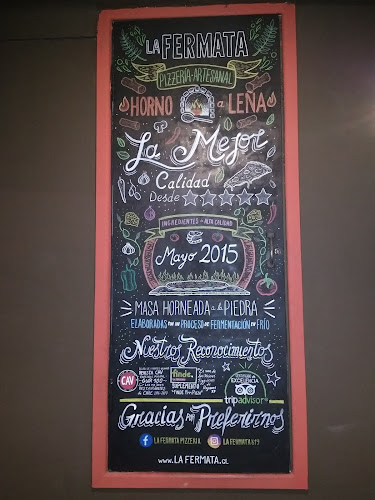 LA FERMATA
PIZZERIA-ARTESANAL
HORNO a LEÑA
La Mejor
Calidad
Desde
INGREDIENTES de ALTA CALIDAD
Mayo 2015
MASA HORNEADA a la PIEDRA
ELABORADAS POR UN PROCESO DE FERMENTACIÓN EN FRÍO
Nuestros Reconocimientos
REVISTA CAV
CAV
GUÍA 100
finde.
SUPLEMENTO
EXCELENCIA
tripadvisor
Gracias por Preferirnos
LA FERMATA PIZZERIA
LA FERMATA
www.LAFERMATA.CL